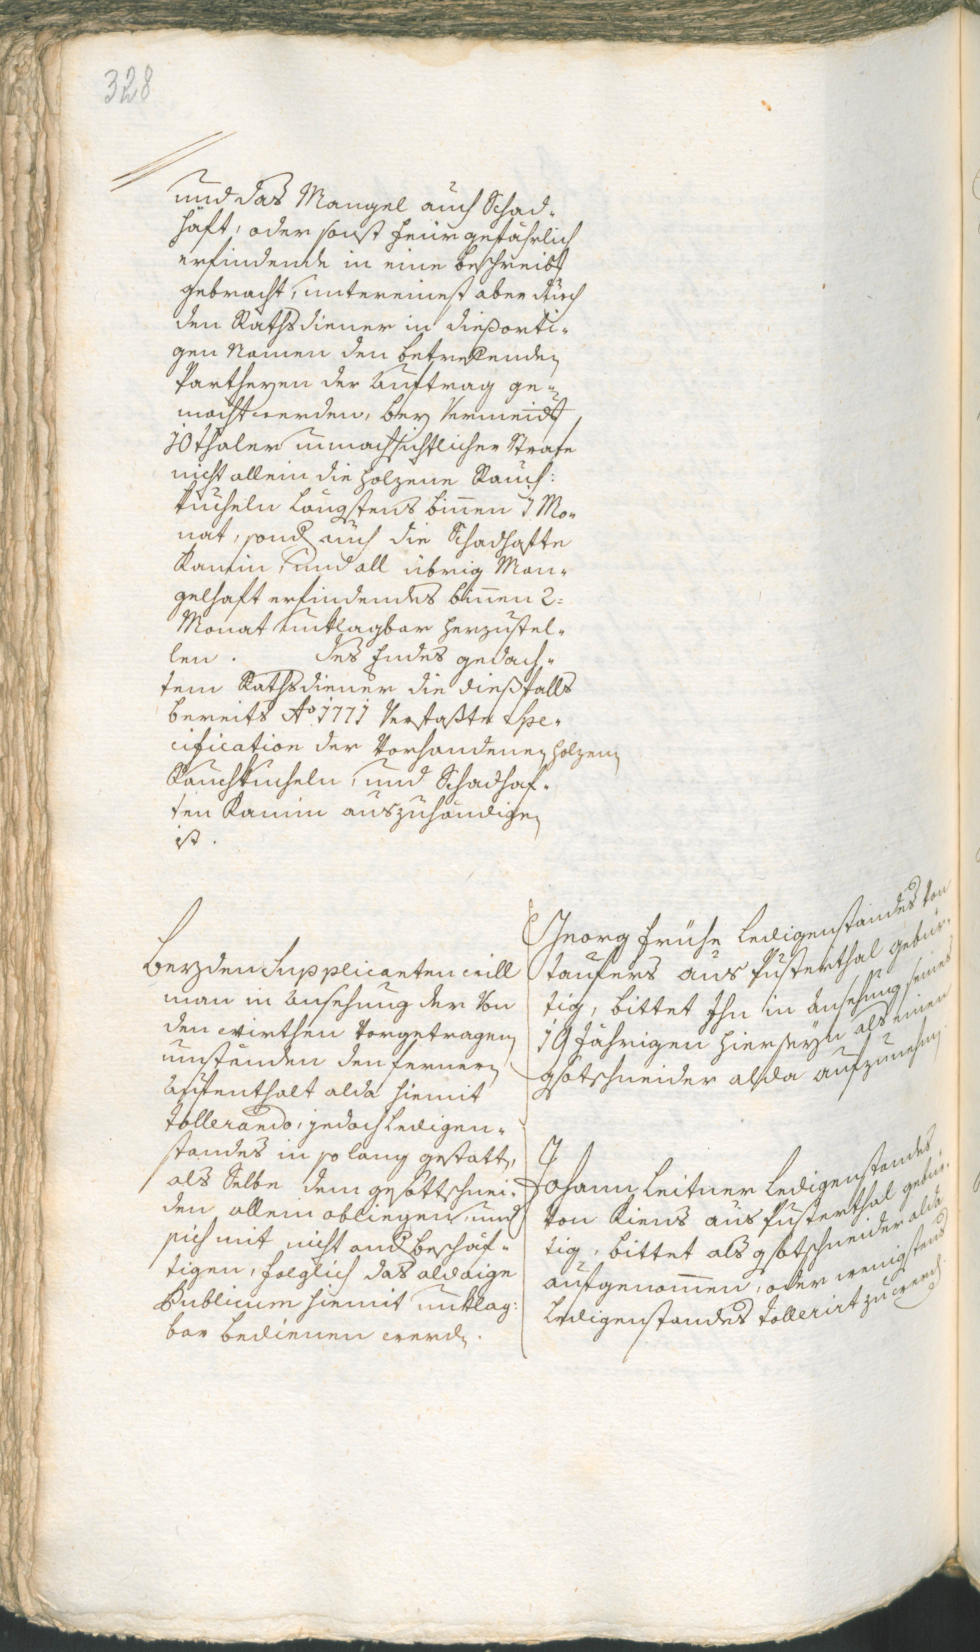 328
und das Mangel auch Schad-
haft, oder sonst feur gefährlich
erfindende in eine Beschreibg
gebracht, untereinest aber durch
den Rathsdiener in dießorti-
gen Namen den betrefenden
Partheyen der Auftrag ge-
macht werden, bey Vermeidg
10 thaler unnachsichtlicher Strafe
nicht allein die holzene Rauch:
kucheln längstens binnen 1 Mo-
nat, sond auch die Schadhafte
Kamin, und all übrig Man-
gelhaft erfindendes binnen 2:
Monat unklagbar herzustel-
len. Des Endes gedach-
tem Rathsdiener die dießfalls
bereits Ao 1771 Verfaßte Spe-
cification der Vorhandenen holzen
Rauchkucheln, und Schadhaf-
ten Kamin auszuhändigen
ist.
Beyden Supplicanten will
man in Ansehung der Von
den Wirthen Vorgetragen
umständen den fernern
Aufenthalt alda hiemit
tollerando, jedoch Ledigen-
standes in so lang gestatten,
als Selbe dem gsottschnei-
den allein obliegen, und
sich mit nicht and beschäf-
tigen, folglich das aldaige
Publicum hiemit unklag:
bar bedienen werden.
Georg Frühe Ledigenstandes Von
Taufers aus Pusterthal gebür-
tig, bittet Ihn in Ansehung seines
19 Jährigen hierseyn als einen
gsotschneider alda aufzunehmen
Johann Leitner Ledigenstandes
Von Kiens aus Pusterthal gebür-
tig, bittet als gsotschneider alda
aufgenommen, oder wenigstens
Ledigenstandes tollerirt zu werden